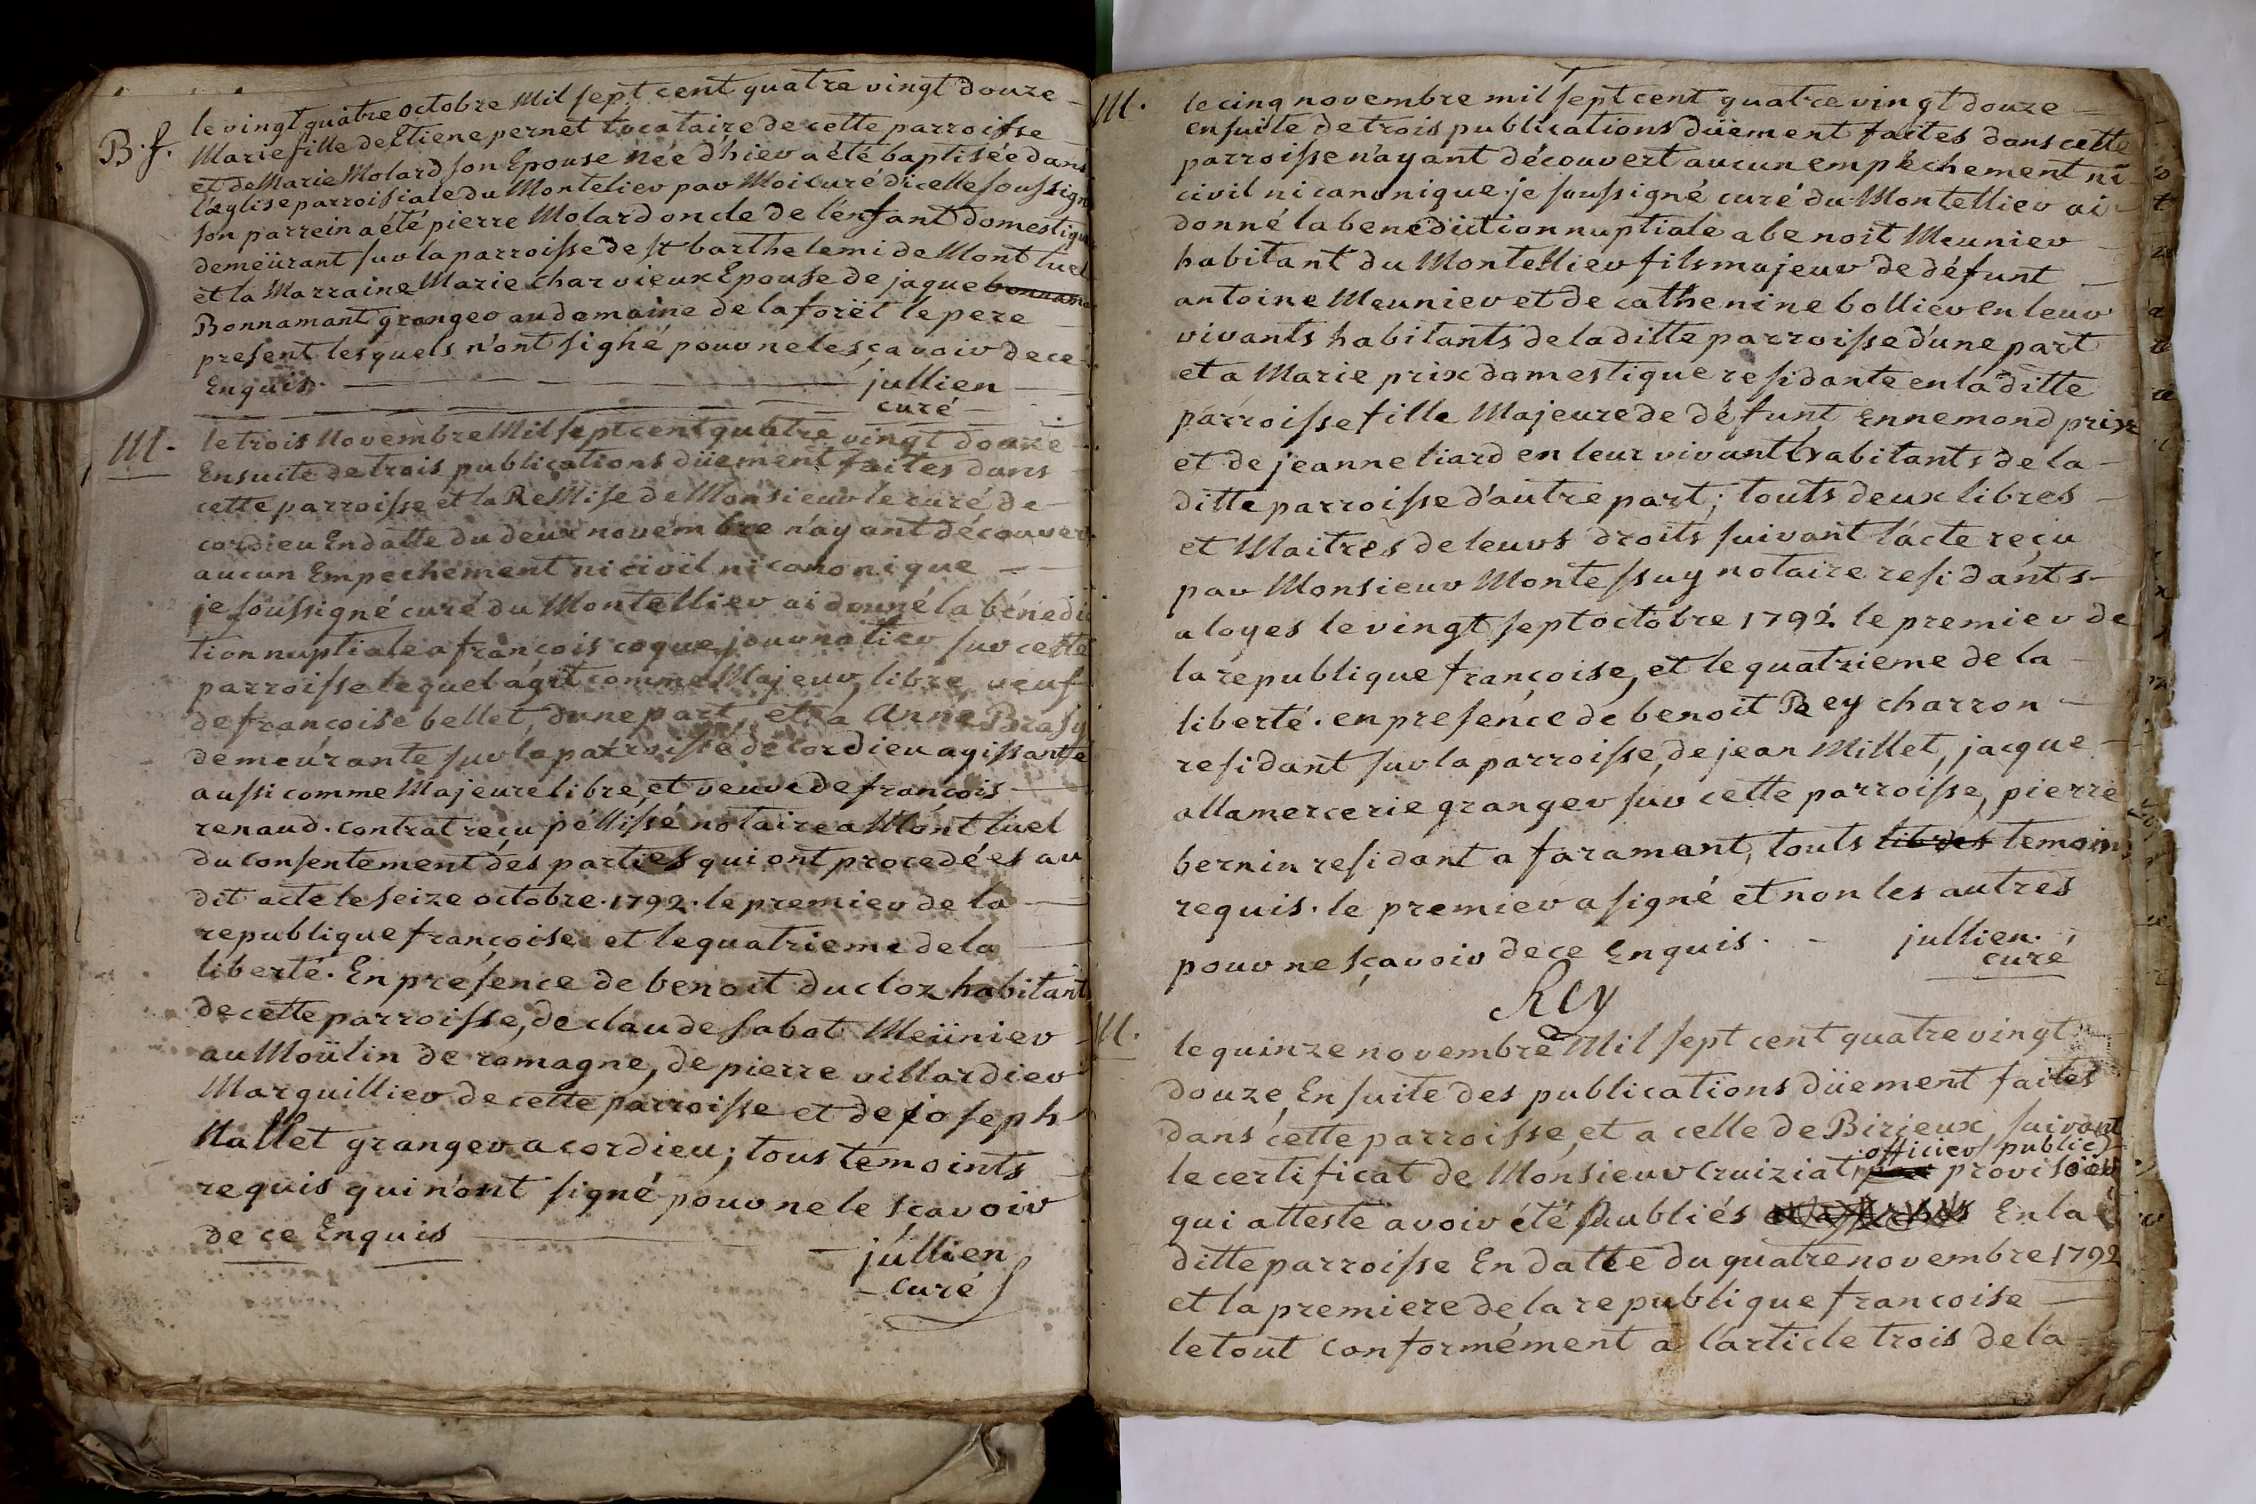 B. f.
le vingt quatre octobre Mil sept cent quatre vingt douze
Marie fille de Etiene pernet locataire de cette parroisse
et de Marie Molard son Epouse Née d'hier a été baptisée dans
l'æglise parroissiale du Montelier par Moi curé d'icelle soussigné
son parrein a été pierre Molard oncle de l'enfant domestique
demeürant sur la parroisse de st barthelemi de Mont luel
et la Marraine Marie charvieux Epouse de jaque bonnamant
Bonnamant granger au domaine de la forêt le pere
present lesquels n'ont signé pour ne le sçavoir de ce
Enquis. jullien
curé
M.
le trois Novembre Mil sept cent quatre vingt douze
Ensuite de trois publications düement faites dans
cette parroisse et la ReMise de Monsieur le curé de
cordieu En datte du deux novembre n'ayant découvert
aucun Empechement ni civil ni canonique
je soussigné curé du Montellier ai donné la bénédic
tion nuptiale a françois coque journalier sur cette
parroisse lequel agit comme Majeur, libre, veuf
de françoise bellet, d'une part, et a Anne Brasy
demeürante sur la parroisse de cordieu agissante
aussi comme Majeure libre, et veuve de françois
renaud. contrat reçu pellissé notaire a Mont luel
du consentement des parties qui ont procedées au
dit acte le seize octobre. 1792. le premier de la
republique françoise et le quatrieme de la
liberté. En presence de benoit ducloz habitant
de cette parroisse, de claude sabot Meünier
au Moülin de romagne, de pierre villardier
Marguillier de cette parroisse et de joseph
Mallet granger a cordieu; tous temoints
requis qui n'ont signé pour ne le sçavoir
de ce Enquis
jullien
curé
M.
le cinq novembre mil sept cent quatre vingt douze
ensuite de trois publications düement faites dans cette
parroisse n'ayant découvert aucun empêchement ni
civil ni canonique. je soussigné curé du Montellier ai
donné la benediction nuptiale a benoit Meunier
habitant du Montellier fils majeur de défunt
antoine Meunier et de catherine bollier en leur
vivants habitants de la ditte parroisse d'une part
et a Marie prix domestique residante en la ditte
parroisse fille Majeure de défunt Ennemond prix
et de jeanne liard en leur vivant habitants de la
ditte parroisse d'autre part; touts deux libres
et Maitres de leurs droits suivant l'acte reçu
par Monsieur Montessuy notaire residants
a loyes le vingt sept octobre 1792 le premier de
la republique françoise, et le quatrieme de la
liberté. en presence de benoit Rey charron
residant sur la parroisse, de jean Millet, jacque
allamercerie granger sur cette parroisse, pierre
bernin residant a faramant, touts libres temoins
requis. le premier a signé et non les autres
pour ne sçavoir de ce Enquis. jullien.
curé
Rey
M.
le quinze novembre Mil sept cent quatre vingt
douze, Ensuite des publications düement faites
dans cette parroisse, et a celle de Birieux, suivant
officier public
le certificat de Monsieur Cruiziat provisoire
qui atteste avoir été publiés En la
ditte parroisse En datte du quatre novembre 1792
et la premiere de la republique francoise
le tout conformément a l'article trois de la